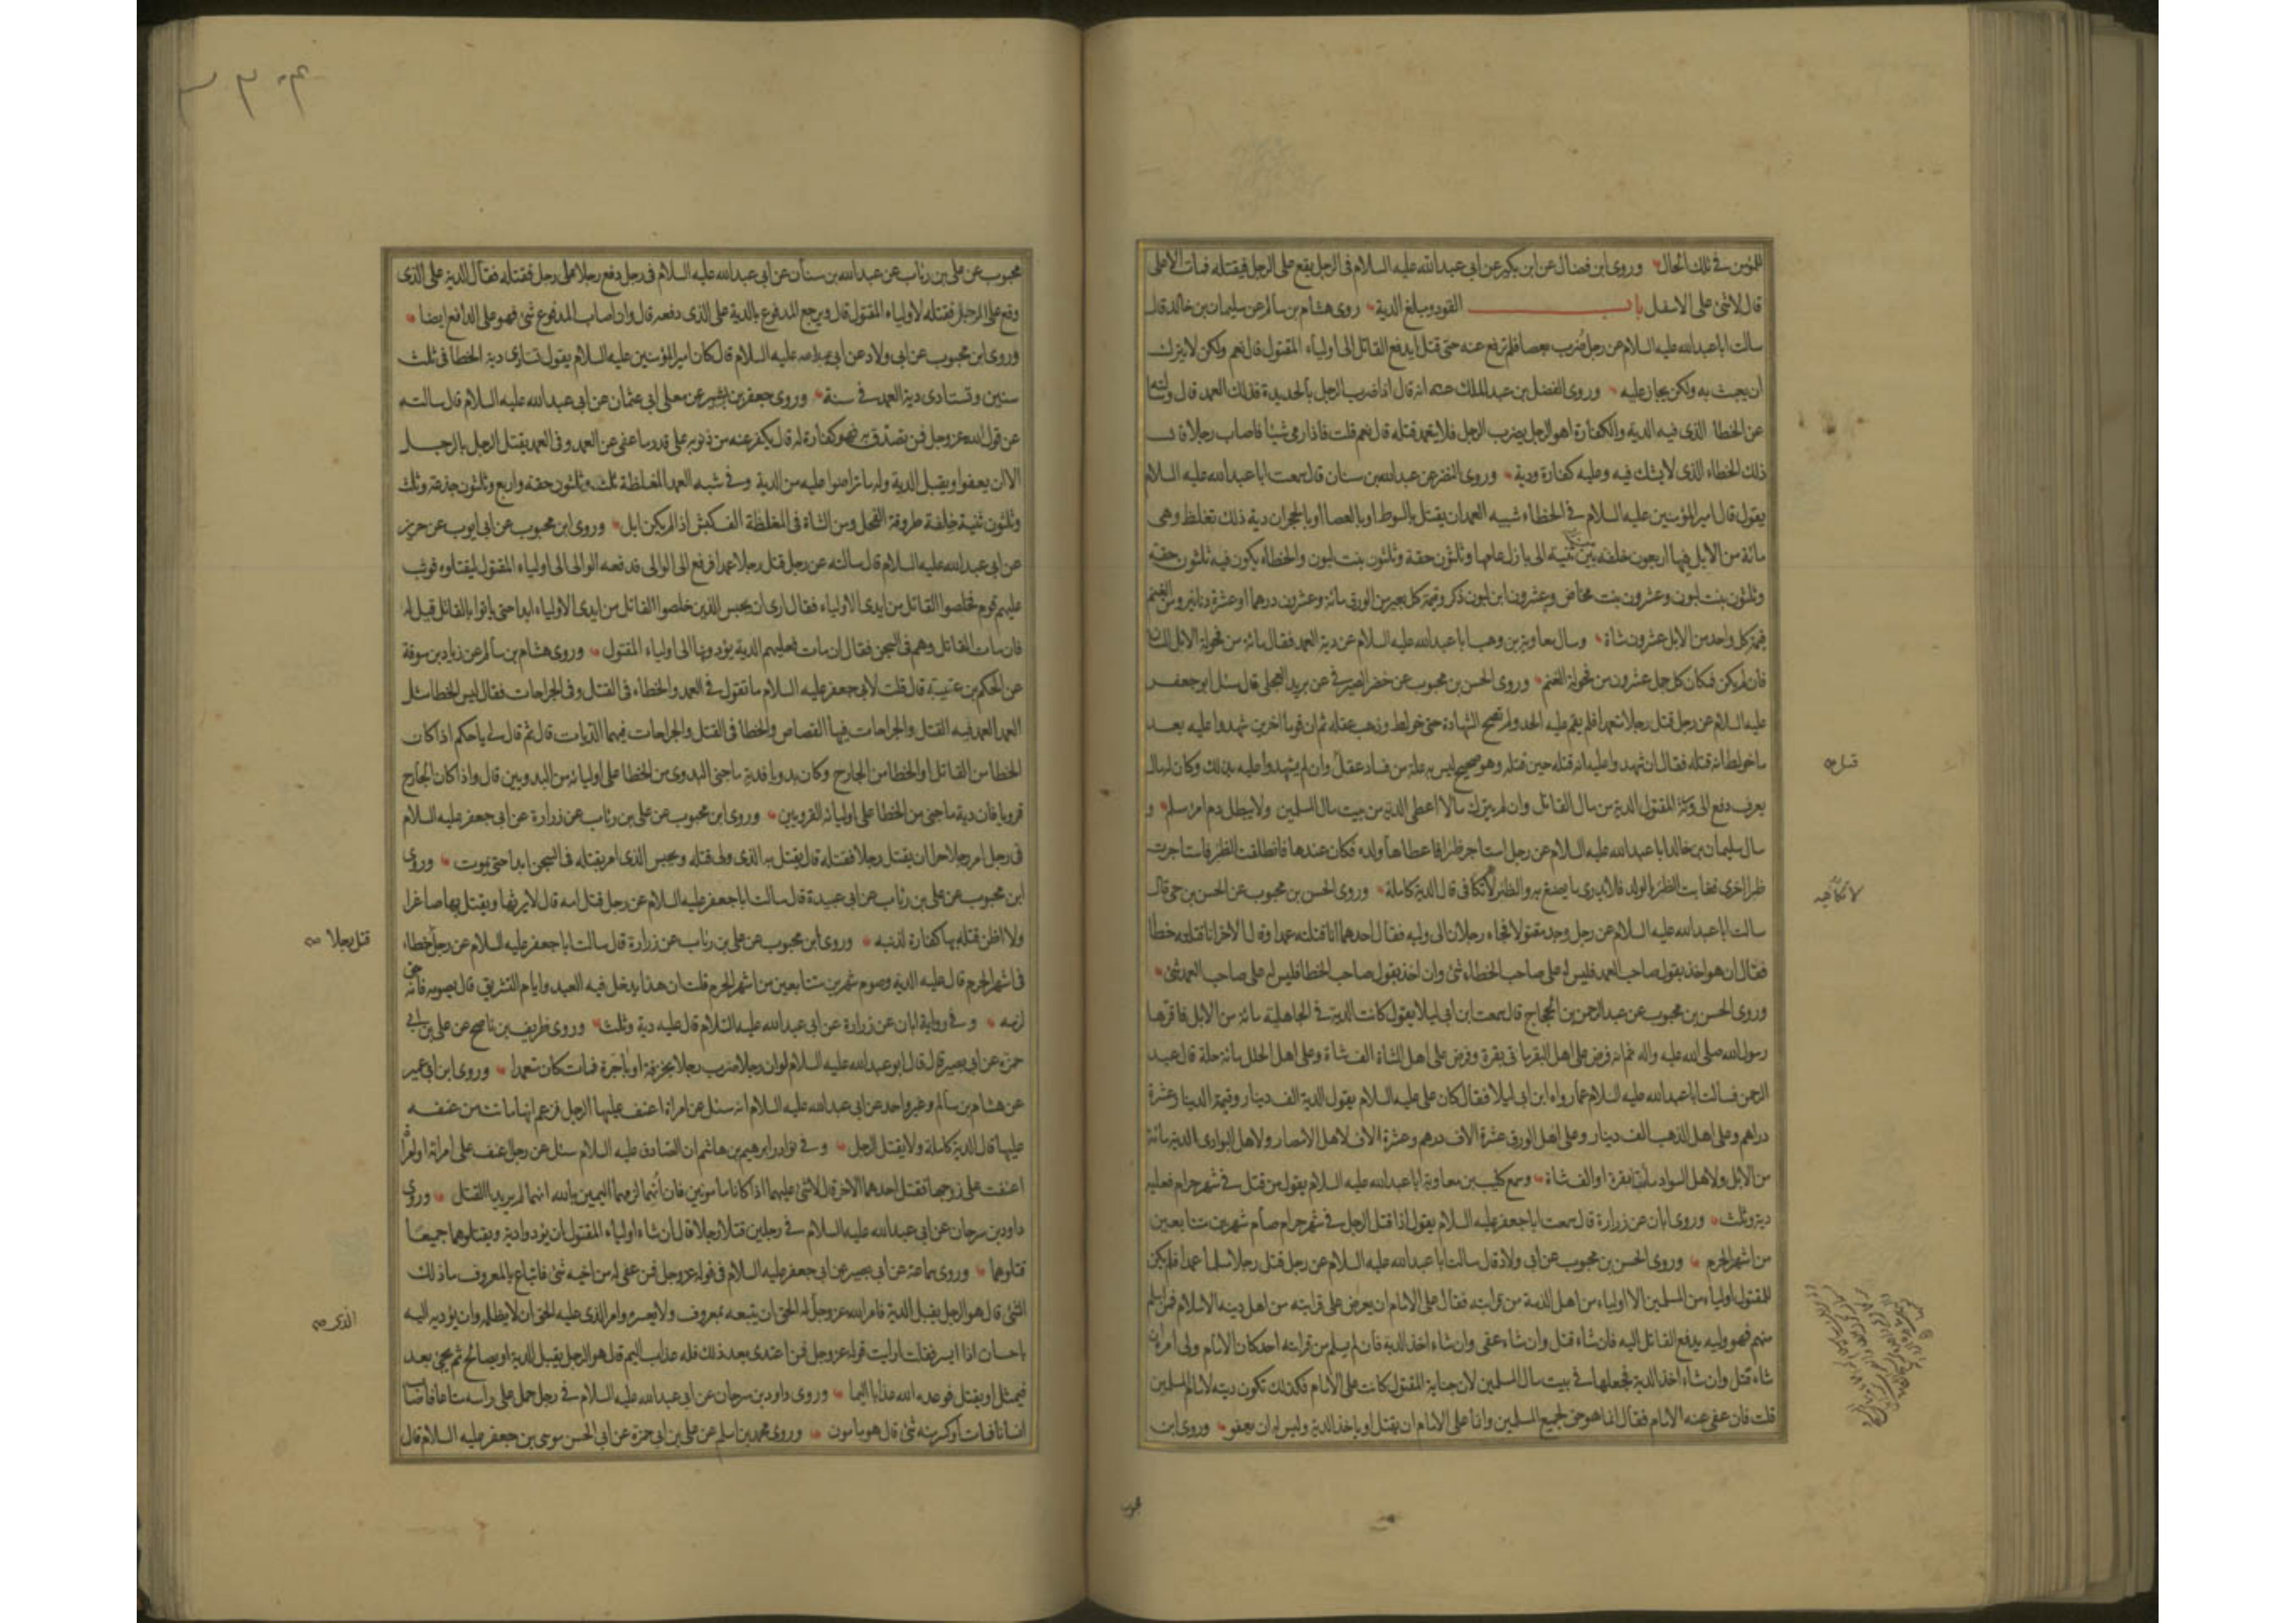 للمؤمن في تلك الحال وروى ابن فضال عن ابن بكير عن ابي عبدالله عليه السلام في الرجل يقع على الرجل فيقتله فمات الاعلى
قال لاشئ على الاسفل باب القود ومبلغ الدية روى هشام بن سالم عن سليمان بن خالد قال
سالت اباعبدالله عليه السلام عن رجل ضرب بعصا فلم ترفع عنه حتى قتل ايدفع القاتل الى اولياء المقتول قال نعم ولكن لايترك
ان يعبث به ولكن يجاز عليه وروى الفضل بن عبد الملك عنه انه قال اذا ضرب الرجل بالحديدة فذلك العمد قال وسالته
عن الخطا الذى فيه الدية والكفارة اهو الرجل يضرب الرجل فلا يتعمد قتله قال نعم قلت فاذا رمى شيئا فاصاب رجلا قال
ذلك الخطاء الذى لايشك فيه وعليه كفارة ودية وروى النضر عن عبدالله بن سنان قال سمعت اباعبدالله عليه السلام
يقول قال امير المؤمنين عليه السلام في الخطاء شبيه العمد ان يقتل بالسوط او بالعصا او بالحجر ان دية ذلك تغلظ وهى
مائة من الابل فيها اربعون خلفة بين ثنية الى بازل عامها وثلثون حقة وثلثون بنت لبون والخطاء يكون فيه ثلثون حقة
وثلثون بنت لبون وعشرون بنت مخاض وعشرون ابن لبون ذكر وقيمة كل بعير من الورق مائة وعشرون درهما او عشرة دنانير ومن الغنم
قيمة كل واحد من الابل عشرون شاة وسال معاوية بن وهب اباعبدالله عليه السلام عن دية العمد فقال مائة من فحولة الابل المسان
فان لم يكن فكان كل جمل عشرون من فحولة الغنم وروى الحسن بن محبوب عن خضر الصيرفي عن بريد العجلي قال سئل ابو جعفر
عليه السلام عن رجل قتل رجلا متعمدا فلم يقم عليه الحد ولم تصح الشهادة حتى خولط وذهب عقله ثم ان قوما اخرين شهدوا عليه بعد
ما خولط انه قتله فقال ان شهدوا عليه انه قتله حين قتله وهو صحيح ليس به علة من فساد عقل وان لم يشهدوا عليه بذلك وكان له مال
يعرف دفع الى ورثة المقتول الدية من مال القاتل وان لم يترك مالا اعطى الدية من بيت مال المسلمين ولايبطل دم امرء مسلم و
سال سليمان بن خالد اباعبدالله عليه السلام عن رجل استاجر ظئرا فاعطاها ولده فكان عندها فانطلقت الظئر فاستاجرت
ظئرا اخرى فغابت الظئر بالولد فلا يدرى ما يصنع به والظئر لا تكافى قال الدية كاملة وروى الحسن بن محبوب عن الحسن بن حي قال
سالت اباعبدالله عليه السلام عن رجل وجد مقتولا فجاء رجلان الى وليه فقال احدهما انا قتلته عمدا وقال الاخر انا قتلته خطا
فقال ان هو اخذ بقول صاحب العمد فليس له على صاحب الخطاء شئ وان اخذ بقول صاحب الخطا فليس له على صاحب العمد شئ
وروى الحسن بن محبوب عن عبد الرحمن بن الحجاج قال سمعت ابن ابي ليلا يقول كانت الدية في الجاهلية مائة من الابل فاقرها
رسول الله صلى الله عليه واله ثم انه فرض على اهل البقر مائتى بقرة وفرض على اهل الشاة الف شاة وعلى اهل الحلل مائة حلة قال عبد
الرحمن فسالت اباعبدالله عليه السلام عما رواه ابن ابي ليلا فقال كان على عليه السلام يقول الدية الف دينار وقيمة الدينار عشرة
دراهم وعلى اهل الذهب الف دينار وعلى اهل الورق عشرة الاف درهم وعشرة الاف لاهل الامصار ولاهل البوادى الدية مائة
من الابل ولاهل السواد مائتا بقرة او الف شاة وسمع كليب بن معاوية اباعبدالله عليه السلام يقول من قتل في شهر حرام فعليه
دية وثلث وروى ابان عن زرارة قال سمعت اباجعفر عليه السلام يقول اذا قتل الرجل في شهر حرام صام شهرين متتابعين
من اشهر الحرم وروى الحسن بن محبوب عن ابي ولاد قال سالت اباعبدالله عليه السلام عن رجل قتل رجلا مسلما عمدا فلم يكن
للمقتول اولياء من المسلمين الا اولياء من اهل الذمة من قرابته فقال على الامام ان يعرض على قرابته من اهل دينه الاسلام فمن اسلم
منهم فهو وليه يدفع القاتل اليه فان شاء قتل وان شاء عفى وان شاء اخذ الدية فان لم يسلم من قرابته احد كان الامام ولى امره ان
شاء قتل وان شاء اخذ الدية فجعلها في بيت مال المسلمين لان جناية المقتول كانت على الامام فكذلك تكون ديته لامام المسلمين
قلت فان عفى عنه الامام فقال انما هو حق لجميع المسلمين وانما على الامام ان يقتل او ياخذ الدية وليس له ان يعفو وروى ابن
محبوب
محبوب عن على بن رئاب عن عبدالله بن سنان عن ابي عبدالله عليه السلام في رجل دفع رجلا على رجل فقتله فقال الدية على الذى
وقع على الرجل فقتله لاولياء المقتول قال ويرجع المدفوع بالدية على الذى دفعه قال وان اصاب المدفوع شئ فهو على الدافع ايضا
وروى ابن محبوب عن ابي ولاد عن ابي عبدالله عليه السلام قال كان امير المؤمنين عليه السلام يقول تستادى دية الخطا في ثلث
سنين وتستادى دية العمد في سنة وروى جعفر بن بشير عن معلى ابي عثمان عن ابي عبدالله عليه السلام قال سالته
عن قول الله عز وجل فمن تصدق به فهو كفارة له قال يكفر عنه من ذنوبه على قدر ما عفى عن العمد وفى العمد يقتل الرجل بالرجل
الا ان يعفوا ويقبل الدية وله ما تراضوا عليه من الدية وفي شبه العمد المغلظة ثلث وثلثون حقة واربع وثلثون جذعة وثلث
وثلثون ثنية خلفة طروقة الفحل ومن الشاة في المغلظة الف كبش اذا لم يكن ابل وروى ابن محبوب عن ابي ايوب عن حريز
عن ابي عبدالله عليه السلام قال سالته عن رجل قتل رجلا عمدا فرفع الى الوالى فدفعه الوالى الى اولياء المقتول ليقتلوه فوثب
عليهم قوم فخلصوا القاتل من ايدى الاولياء فقال ارى ان يحبس الذين خلصوا القاتل من ايدى الاولياء ابدا حتى ياتوا بالقاتل قيل له
فان مات القاتل وهم في السجن فقال ان مات فعليهم الدية يؤدونها الى اولياء المقتول وروى هشام بن سالم عن زياد بن سوقة
عن الحكم بن عتيبة قال قلت لابي جعفر عليه السلام ما تقول في العمد والخطاء في القتل وفى الجراحات فقال ليس الخطا مثل
العمد العمد فيه القتل والجراحات فيها القصاص والخطا في القتل والجراحات فيهما الديات قال ثم قال لي ياحكم اذا كان
الخطا من القاتل او الخطا من الجارح وكان بدويا فدية ما جنى البدوى من الخطا على اوليائه من البدويين قال واذا كان الجارح
قرويا فان دية ما جنى من الخطا على اوليائه القرويين وروى ابن محبوب عن على بن رئاب عن زرارة عن ابي جعفر عليه السلام
في رجل امر رجلا حرا ان يقتل رجلا فقتله قال يقتل به الذى ولى قتله ويحبس الذى امر بقتله في السجن ابدا حتى يموت وروى
ابن محبوب عن على بن رئاب عن ابي عبيدة قال سالت اباجعفر عليه السلام عن رجل قتل امه قال لايرثها ويقتل بها صاغرا
ولا اظن قتله بها كفارة لذنبه وروى ابن محبوب عن على بن رئاب عن زرارة قال سالت اباجعفر عليه السلام عن رجل خطاء
قتل رجلا
في اشهر الحرم قال عليه الدية وصوم شهرين متتابعين من اشهر الحرم قلت ان هذا يدخل فيه العيد وايام التشريق قال يصومه فانه حق
لزمه وفي رواية ابان عن زرارة عن ابي عبدالله عليه السلام قال عليه دية وثلث وروى ظريف بن ناصح عن على بن ابي
حمزة عن ابي بصير قال قال ابوعبدالله عليه السلام لو ان رجلا ضرب رجلا بخزفة او باجرة فمات كان متعمدا وروى ابن ابي عمير
عن هشام بن سالم وغير واحد عن ابي عبدالله عليه السلام انه سئل عن امراة اعنف عليها الرجل فزعم انها ماتت من عنفه
عليها قال الدية كاملة ولايقتل الرجل وفي نوادر ابرهيم بن هاشم ان الصادق عليه السلام سئل عن رجل عنف على امراته او امراة
اعنفت على زوجها فقتل احدهما الاخر قال لاشئ عليهما اذا كانا مامونين فان اتهما الزمهما اليمين بالله انهما لم يريدا القتل وروى
داود بن سرحان عن ابي عبدالله عليه السلام في رجلين قتلا رجلا قال ان شاء اولياء المقتول ان يؤدوا دية ويقتلوهما جميعا
قتلوهما وروى سماعة عن ابي بصير عن ابي جعفر عليه السلام في قوله عز وجل فمن عفى له من اخيه شئ فاتباع بالمعروف ما ذلك
الشئ قال هو الرجل يقبل الدية فامر الله عز وجل له الحق ان يتبعه بمعروف ولايعسره وامر الذى عليه الحق ان لايظلمه وان يؤديه اليه
الذى
باحسان اذا ايسر فقلت ارايت قوله عز وجل فمن اعتدى بعد ذلك فله عذاب اليم قال هو الرجل يقبل الدية او يصالح ثم يجئ بعد
فيمثل او يقتل فوعده الله عذابا اليما وروى داود بن سرحان عن ابي عبدالله عليه السلام في رجل حمل على راسه متاعا فاصاب
انسانا فمات او كسر منه شئ قال هو مامون وروى محمد بن اسلم عن على بن ابي حمزة عن ابي الحسن موسى بن جعفر عليه السلام قال